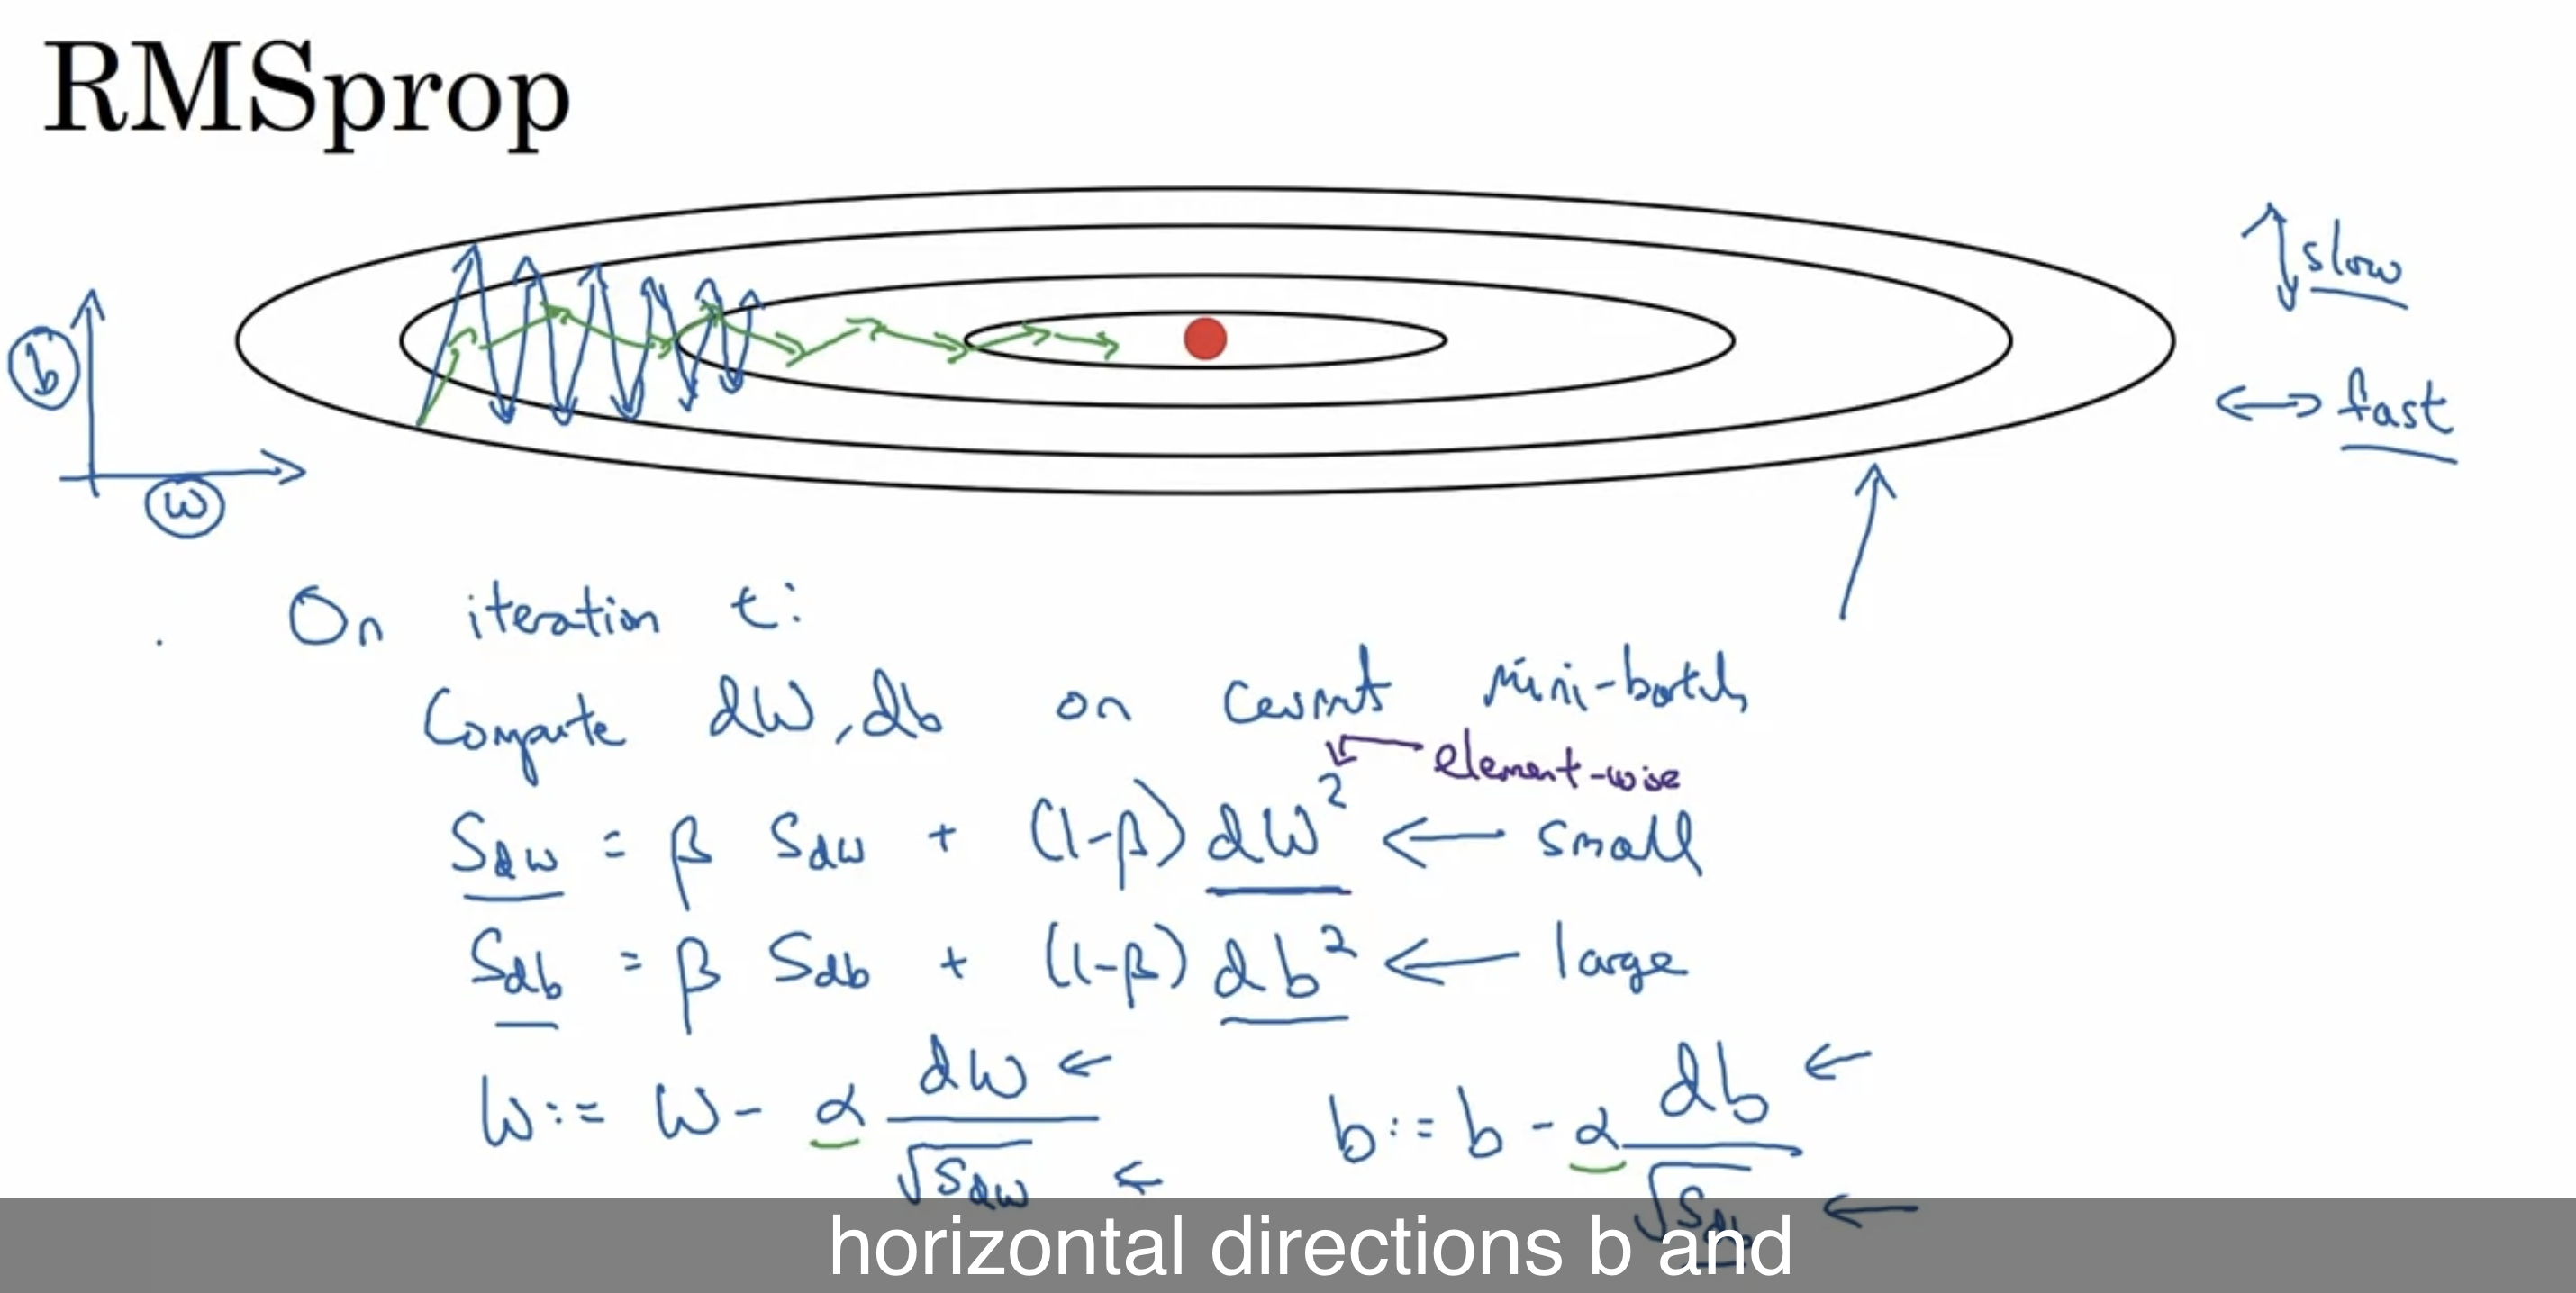 RMSprop
slow
b
fast
w
On iteration t:
Compute dW, db on current mini-batch
element-wise
Sdw = β Sdw + (1-β) dW² ← small
Sdb = β Sdb + (1-β) db² ← large
W := W - α dW/√Sdw ← b := b - α db/√Sdb ←
horizontal directions b and